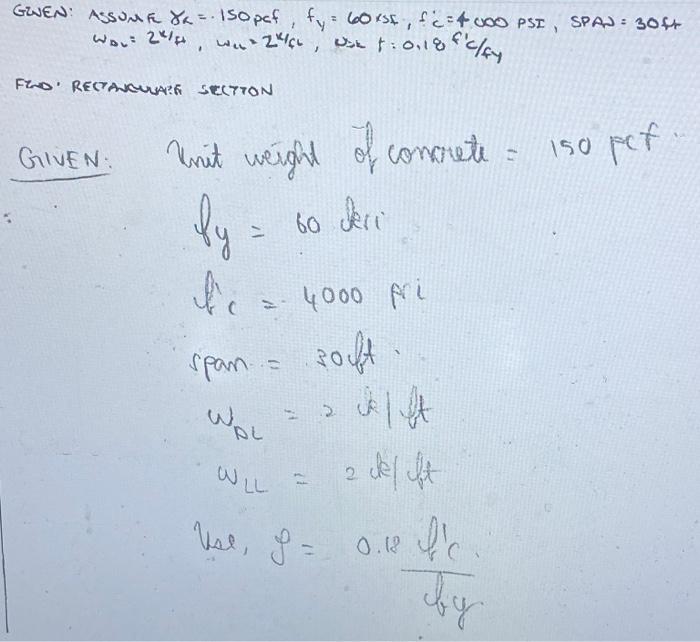 GIVEN: ASSUME γc = 150 pcf, fy = 60 KSI, f'c = 4000 PSI, SPAN = 30 ft
WDL = 2 k/ft, WLL = 2 k/ft, USE ρ = 0.18 f'c/fy
FIND: RECTANGULAR SECTION
GIVEN: Unit weight of concrete = 150 pcf.
fy = 60 ksi
f'c = 4000 psi
span = 30 ft.
WDL = 2 k/ft
WLL = 2 k/ft
Use, ρ = 0.18 f'c
fy